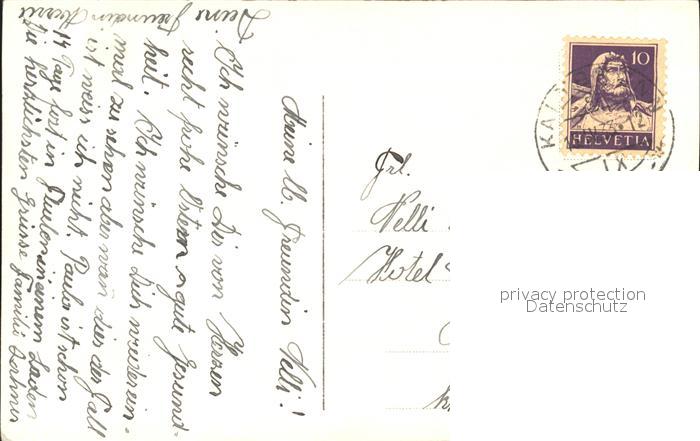 Meine lb. Freundin Nelli!
Ich wünsche Dir von Herzen
recht frohe Ostern u. gute Gesund-
heit. Ich wünsche Dich wieder ein-
mal zu sehen aber wan dies der Fall
ist weiss ich nicht. Paula ist schon
14 Tage fort in einem Laden
die herzlichsten Grüsse Familie
Deine Freundin
Frl.
Nelli
Hotel
10
HELVETIA
privacy protection
Datenschutz